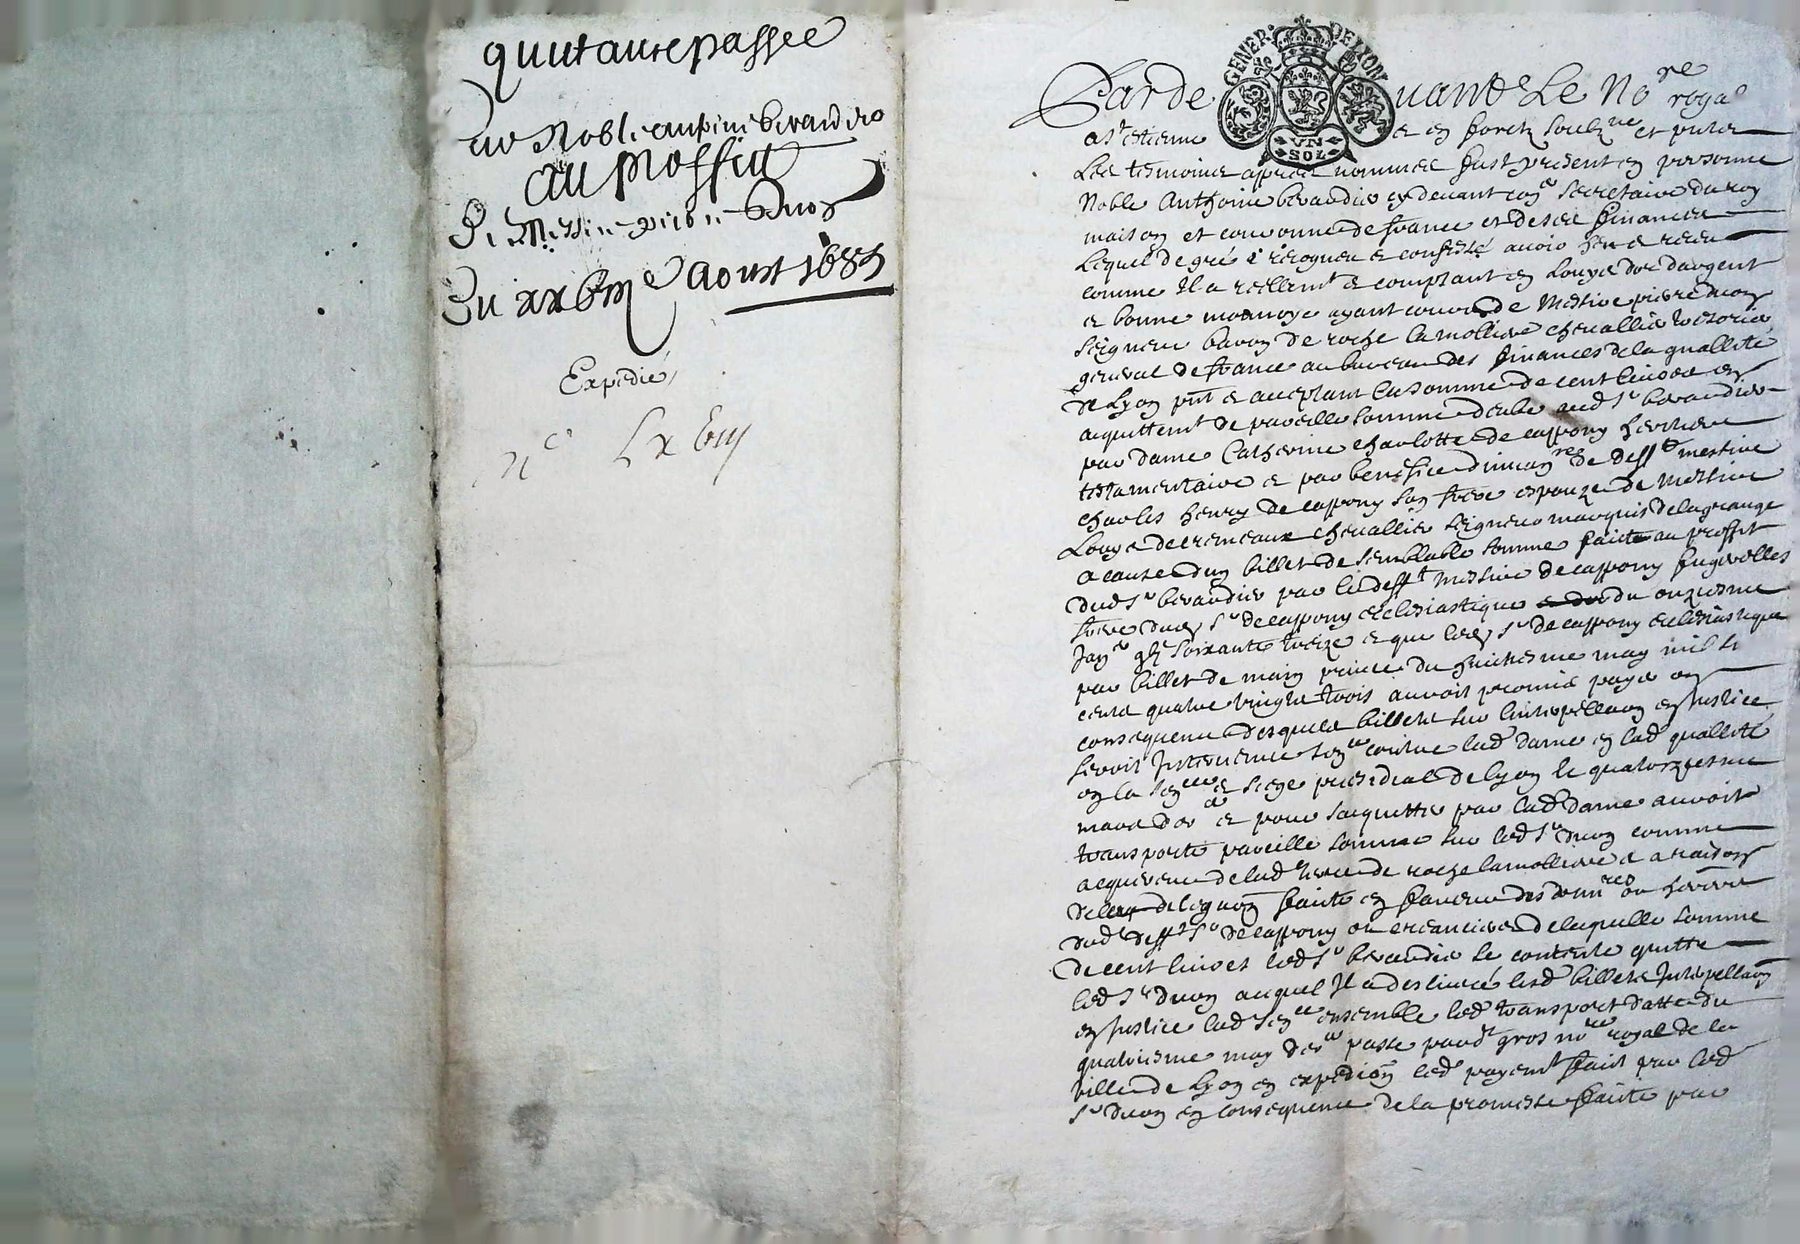 quittance passee
par Noble anthoine berardier
au proffict
De Messire pierre Dnoz
Du xxbme Aoust 1685
Expedié
nc Lxbiij
GENER DE LION
VN
SOL
Pardeuant Le Nore royal
a St estienne en forest soubzne et pntz
Les tesmoins apres nommes fust present en personne
Noble Anthoine berardier cy deuant conr secretaire du roy
maison et couronne de france et de ses finances
Lequel de gré a recogneu et confessé auoir heu et receu
comme Il a reellemt et comptant en Louys dor dargent
et bonne monnoye ayant cours de Messire pierre
seigneur baron de roche la molliere cheuallier tresorier
general de france au bureau des finances de la generallité
de Lyon pnt et acceptant la somme de cent liures en
acquittemt de pareille somme deube aud Sr berardier
par dame Catherine charlotte de cappony heritiere
testamentaire et par benefice dinuenre de defft messire
charles henry de cappony son frere espouze de Messire
Louys de cremeaux cheuallier seigneur marquis de la grange
a cause dun billet de semblable somme faict au proffit
dud Sr berardier par led defft messire de cappony fugerolles
frere dud Sr de cappony eclesiastique du onziesme
Janr gbi soixante treize et que led Sr de cappony eclesiastique
par billet de main priuée du huictiesme may mil six
cents quatre vingts trois auroit promis payer en
consequence desquels billets sur linterpellaon en Justice
seroit Interuenue sence contre lad dame en lad quallité
en la senee et siege presidial de Lyon le quatorziesme
mars der et pour sacquitter par lad dame auroit
transporté pareille somme sur led Sr comme
acquereur de lad terre de roche la molliere et a raison
de la delegaon faicte en faueur des domres ou heritiers
dud defft Sr de cappony ou creanciers de laquelle somme
de cent liures led Sr berardier se contente quitte
led Sr auquel Il a desliuré lesd billets Interpellaon
en Justice lad sence ensemble led transport datte du
quatriesme may der passé pardt gros nore royal de la
ville de Lyon en expedion led payemt faict par led
Sr en consequence de la promesse faicte par